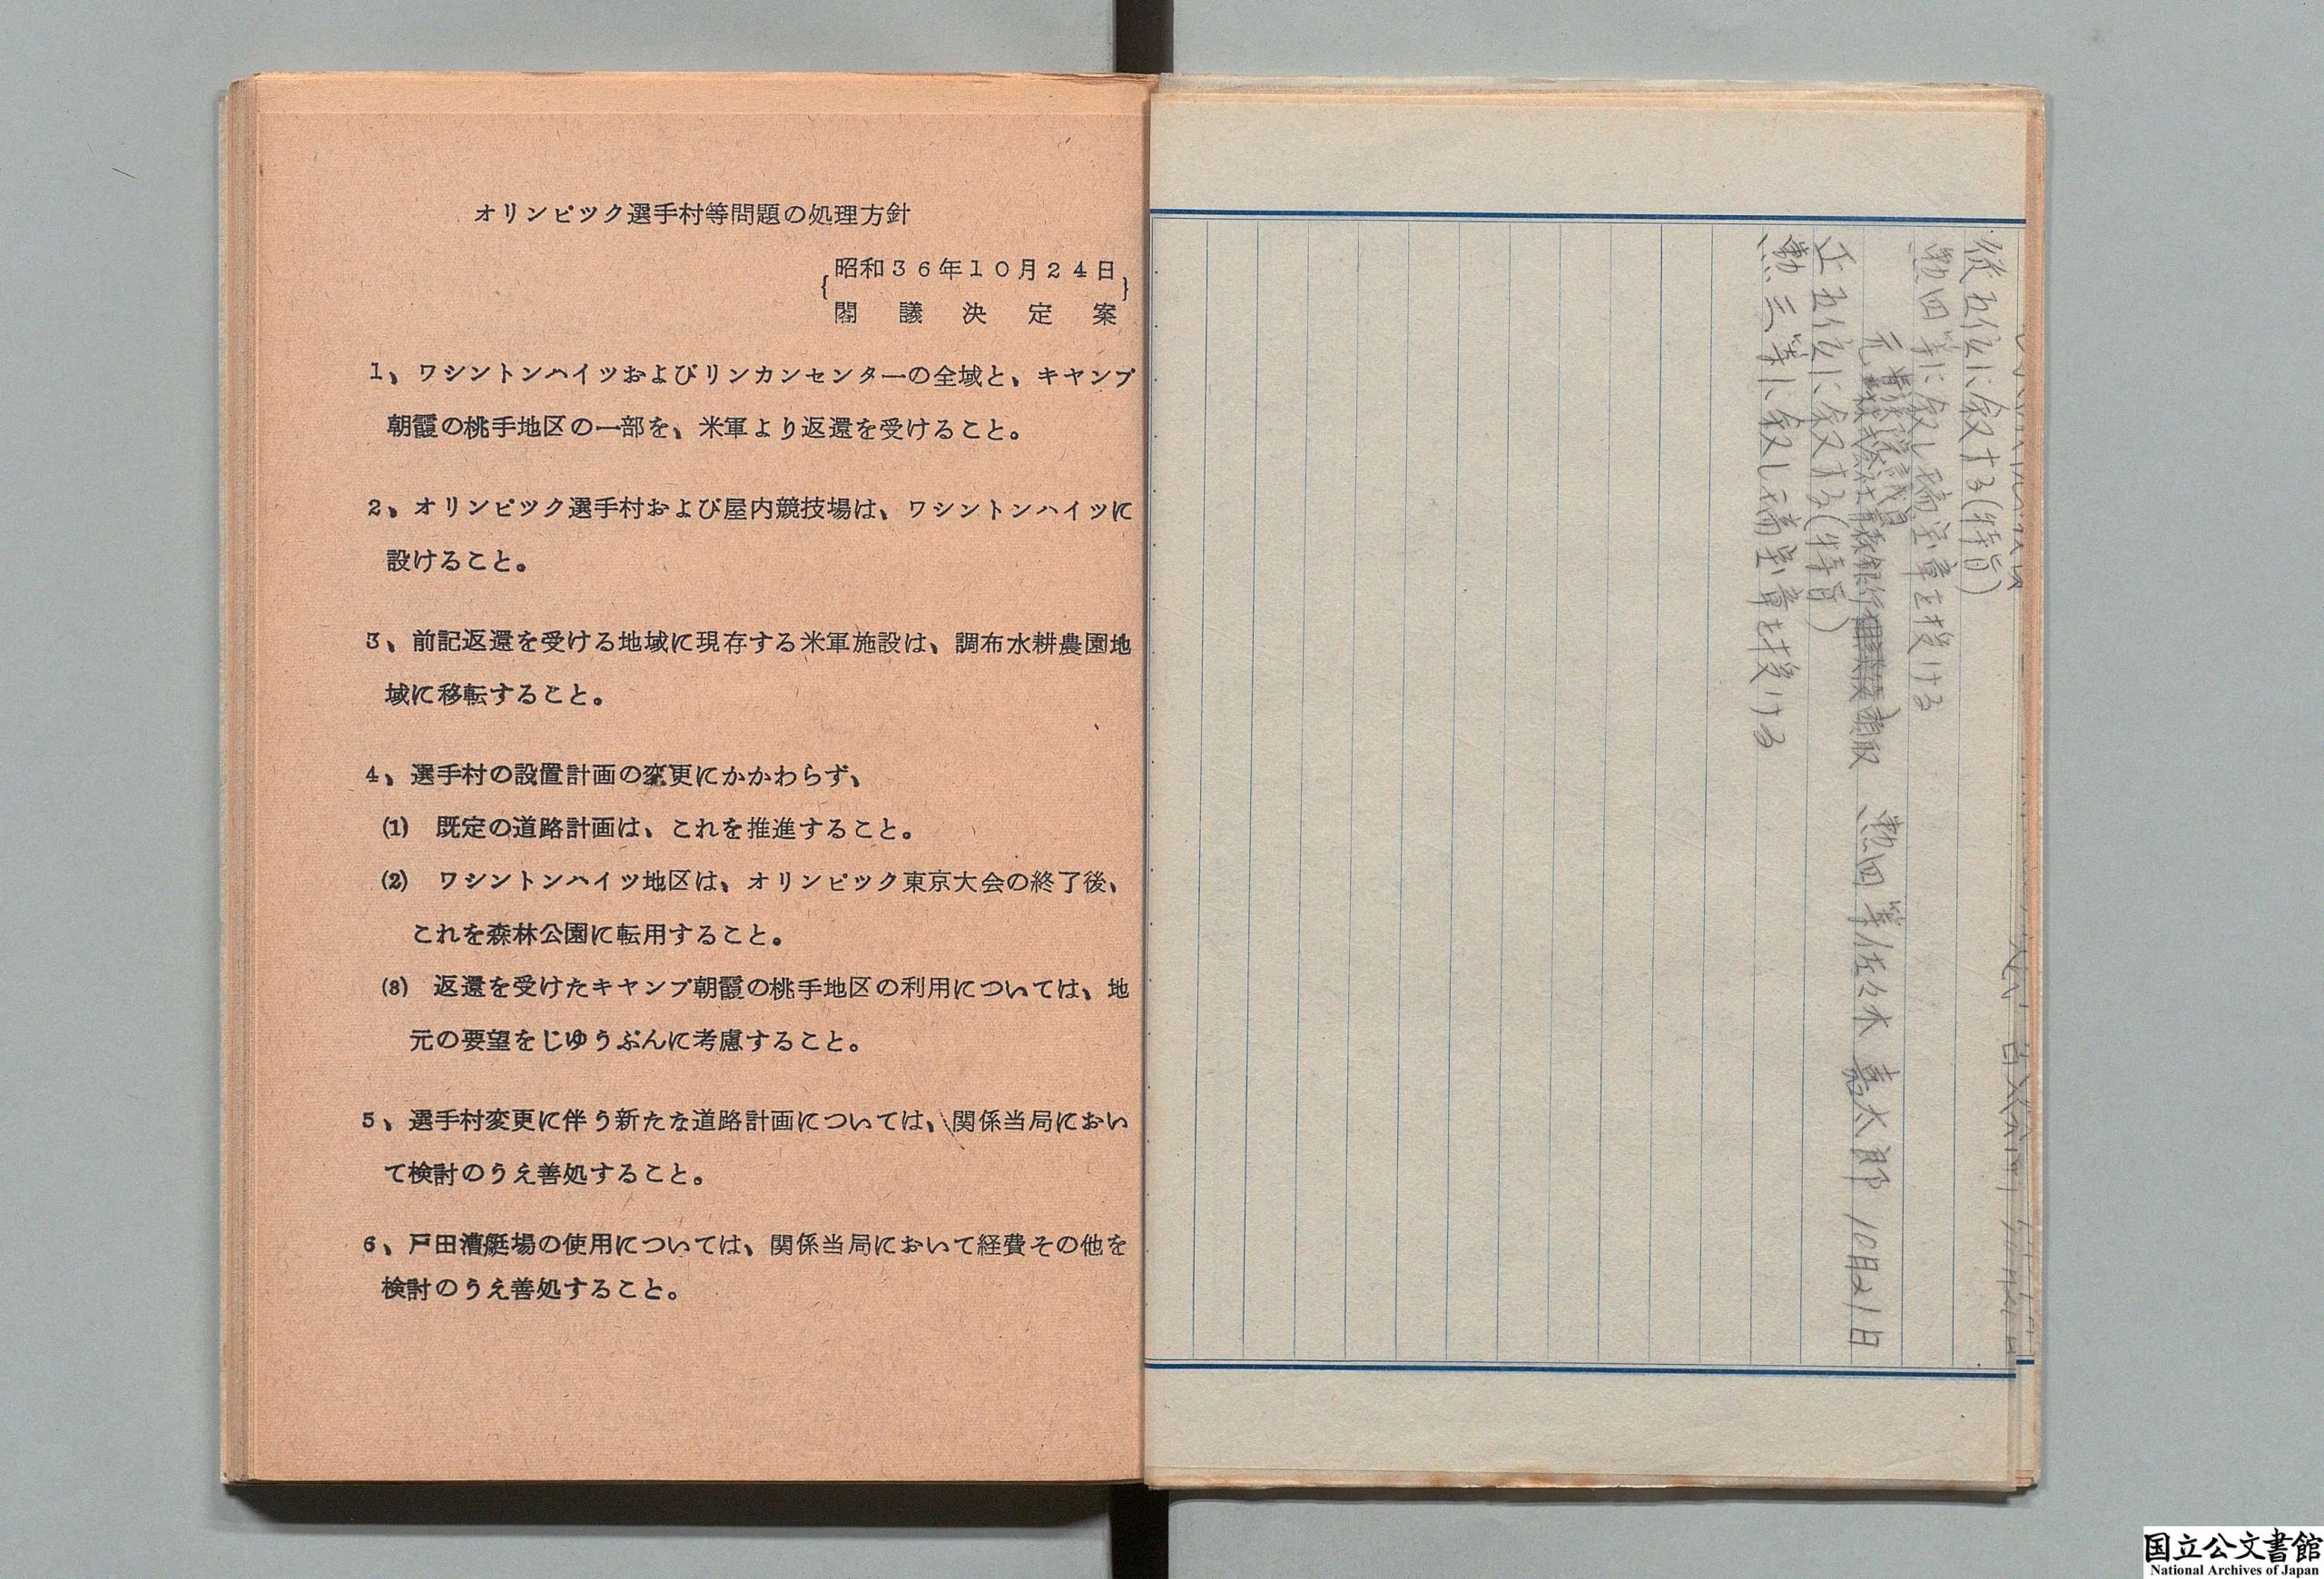 オリンピツク選手村等問題の処理方針
昭和36年10月24日
閣議決定案
1、ワシントンハイツおよびリンカンセンターの全域と、キヤンプ
朝霞の桃手地区の一部を、米軍より返還を受けること。
2、オリンピツク選手村および屋内競技場は、ワシントンハイツに
設けること。
3、前記返還を受ける地域に現存する米軍施設は、調布水耕農園地
域に移転すること。
4、選手村の設置計画の変更にかかわらず、
(1) 既定の道路計画は、これを推進すること。
(2) ワシントンハイツ地区は、オリンピツク東京大会の終了後、
これを森林公園に転用すること。
(3) 返還を受けたキヤンプ朝霞の桃手地区の利用については、地
元の要望をじゆうぶんに考慮すること。
5、選手村変更に伴う新たな道路計画については、関係当局におい
て検討のうえ善処すること。
6、戸田漕艇場の使用については、関係当局において経費その他を
検討のうえ善処すること。
従五位に叙する(特旨)
勲四等に叙し瑞宝章を授ける
元 株式会社青森銀行 頭取 勲四等佐々木嘉太郎 10月21日
正五位に叙する(特旨)
勲三等に叙し瑞宝章を授ける
国立公文書館
National Archives of Japan